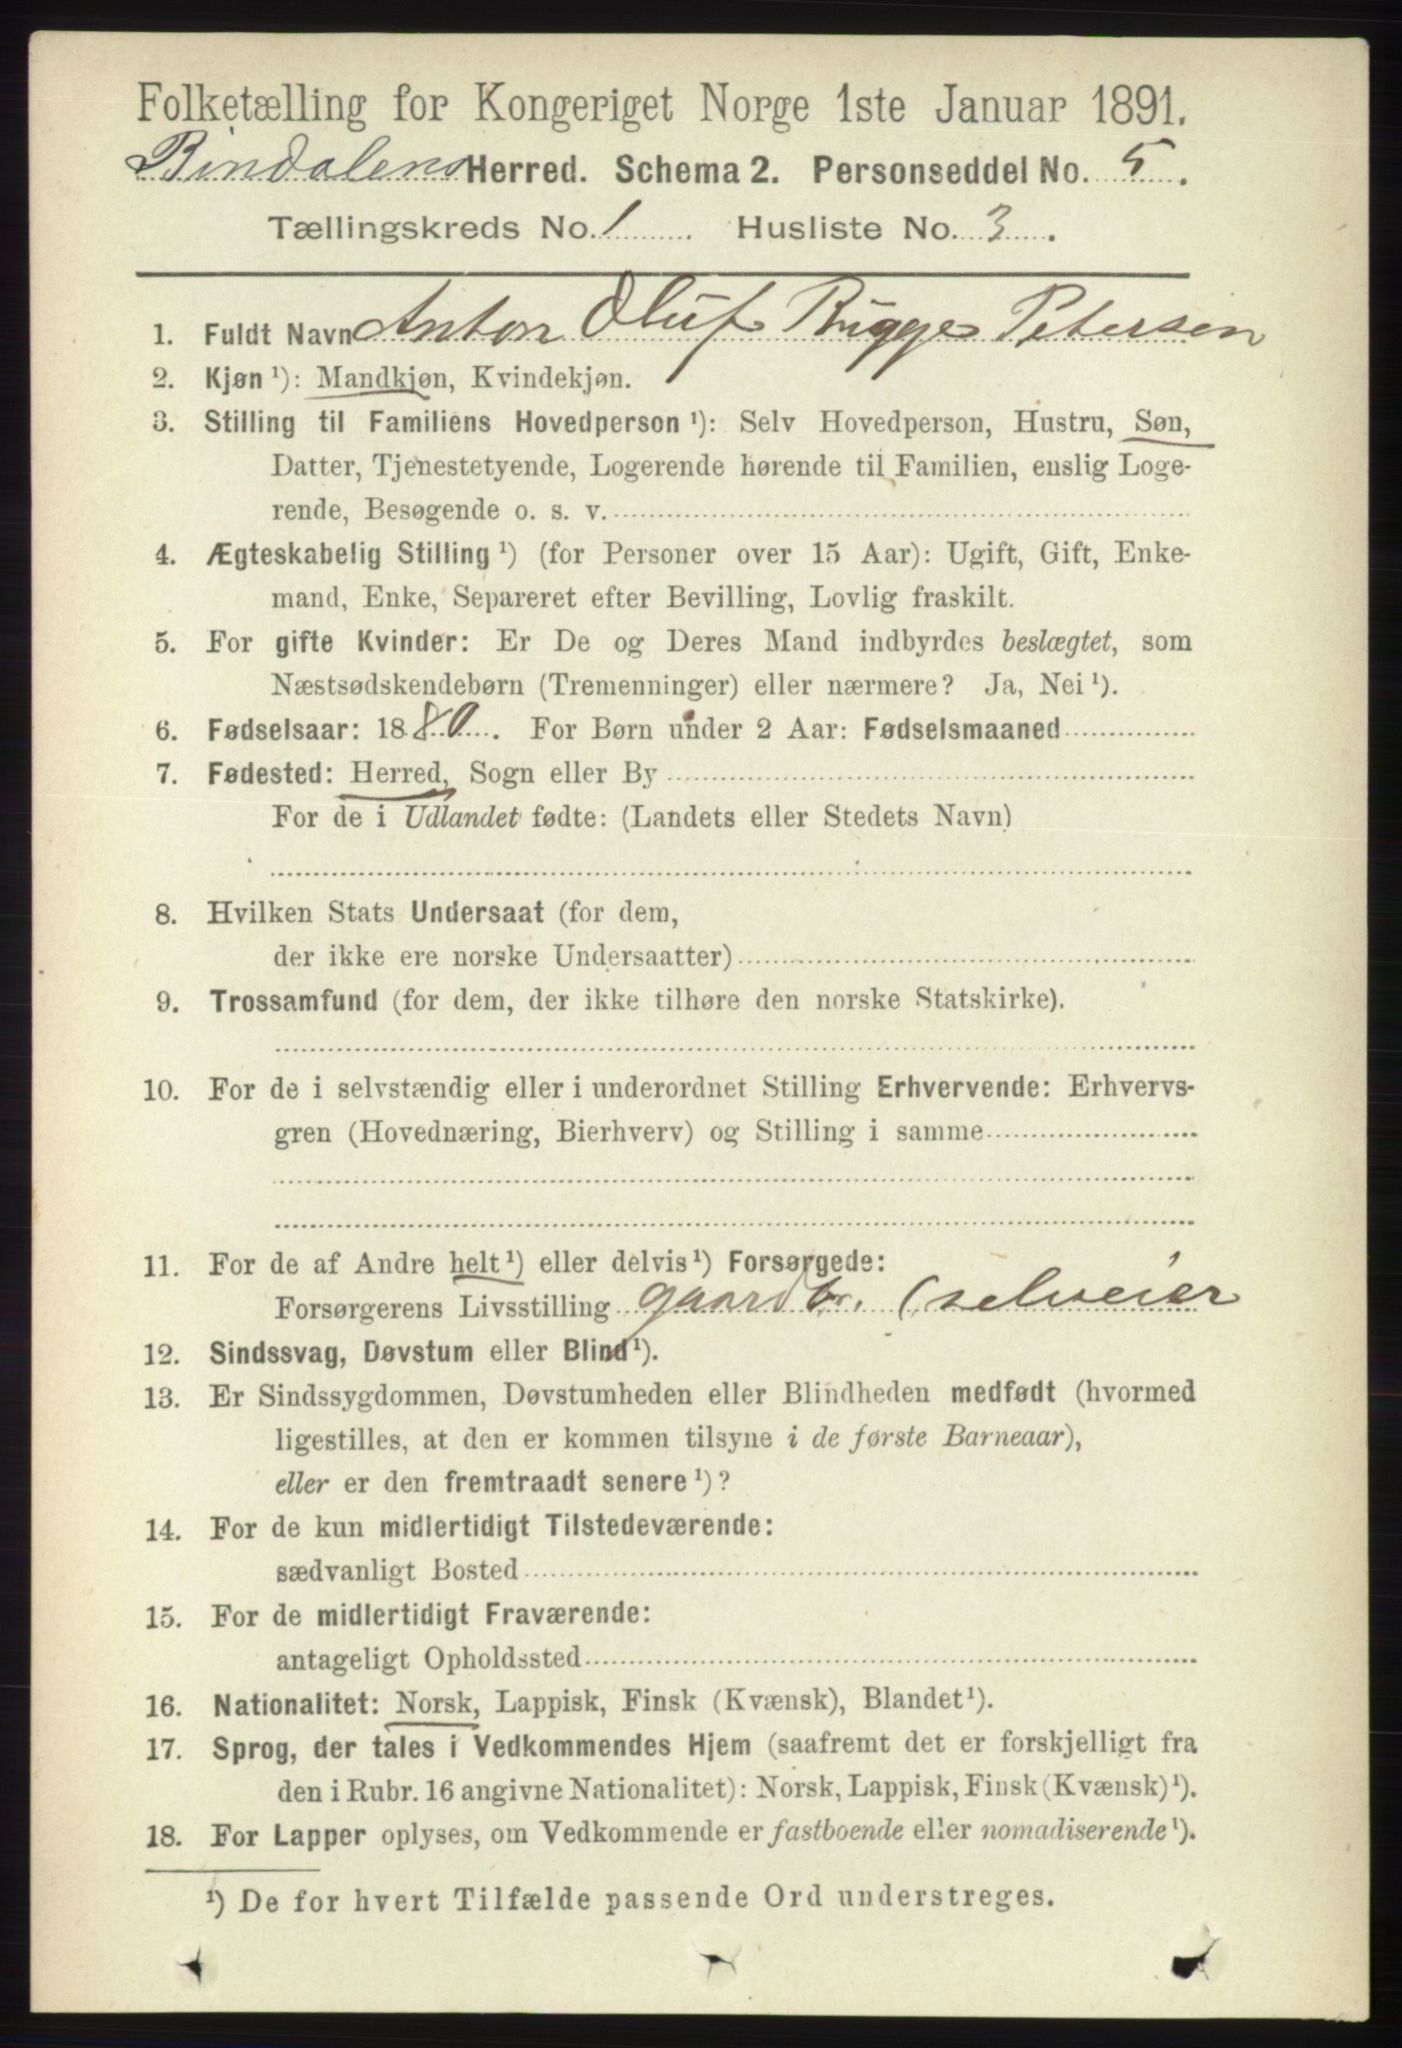 Folketælling for Kongeriget Norge 1ste Januar 1891.
Bindalens Herred. Schema 2. Personseddel No. 5.
Tællingskreds No. 1 Husliste No. 3.
1. Fuldt Navn Anton Oluf Brügge Petersen
2. Kjøn ¹): Mandkjøn, Kvindekjøn.
3. Stilling til Familiens Hovedperson ¹): Selv Hovedperson, Hustru, Søn,
Datter, Tjenestetyende, Logerende hørende til Familien, enslig Loge-
rende, Besøgende o. s. v.
4. Ægteskabelig Stilling ¹) (for Personer over 15 Aar): Ugift, Gift, Enke-
mand, Enke, Separeret efter Bevilling, Lovlig fraskilt.
5. For gifte Kvinder: Er De og Deres Mand indbyrdes beslægtet, som
Næstsødskendebørn (Tremenninger) eller nærmere? Ja, Nei ¹).
6. Fødselsaar: 1880. For Børn under 2 Aar: Fødselsmaaned
7. Fødested: Herred, Sogn eller By
For de i Udlandet fødte: (Landets eller Stedets Navn)
8. Hvilken Stats Undersaat (for dem,
der ikke ere norske Undersaatter)
9. Trossamfund (for dem, der ikke tilhøre den norske Statskirke).
10. For de i selvstændig eller i underordnet Stilling Erhvervende: Erhvervs-
gren (Hovednæring, Bierhverv) og Stilling i samme
11. For de af Andre helt ¹) eller delvis ¹) Forsørgede:
Forsørgerens Livsstilling gaardbr. (selveier
12. Sindssvag, Døvstum eller Blind ¹).
13. Er Sindssygdommen, Døvstumheden eller Blindheden medfødt (hvormed
ligestilles, at den er kommen tilsyne i de første Barneaar),
eller er den fremtraadt senere ¹)?
14. For de kun midlertidigt Tilstedeværende:
sædvanligt Bosted
15. For de midlertidigt Fraværende:
antageligt Opholdssted
16. Nationalitet: Norsk, Lappisk, Finsk (Kvænsk), Blandet ¹).
17. Sprog, der tales i Vedkommendes Hjem (saafremt det er forskjelligt fra
den i Rubr. 16 angivne Nationalitet): Norsk, Lappisk, Finsk (Kvænsk) ¹).
18. For Lapper oplyses, om Vedkommende er fastboende eller nomadiserende ¹).
¹) De for hvert Tilfælde passende Ord understreges.